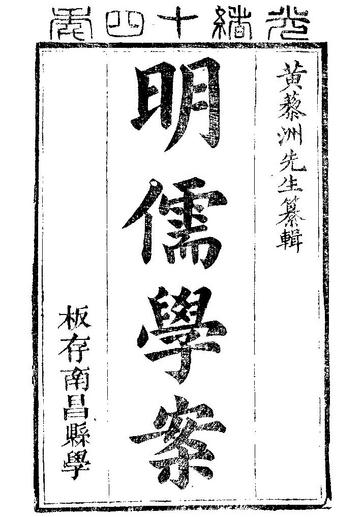 光緒十四年
黃黎洲先生纂輯
明儒學案
板存南昌縣學